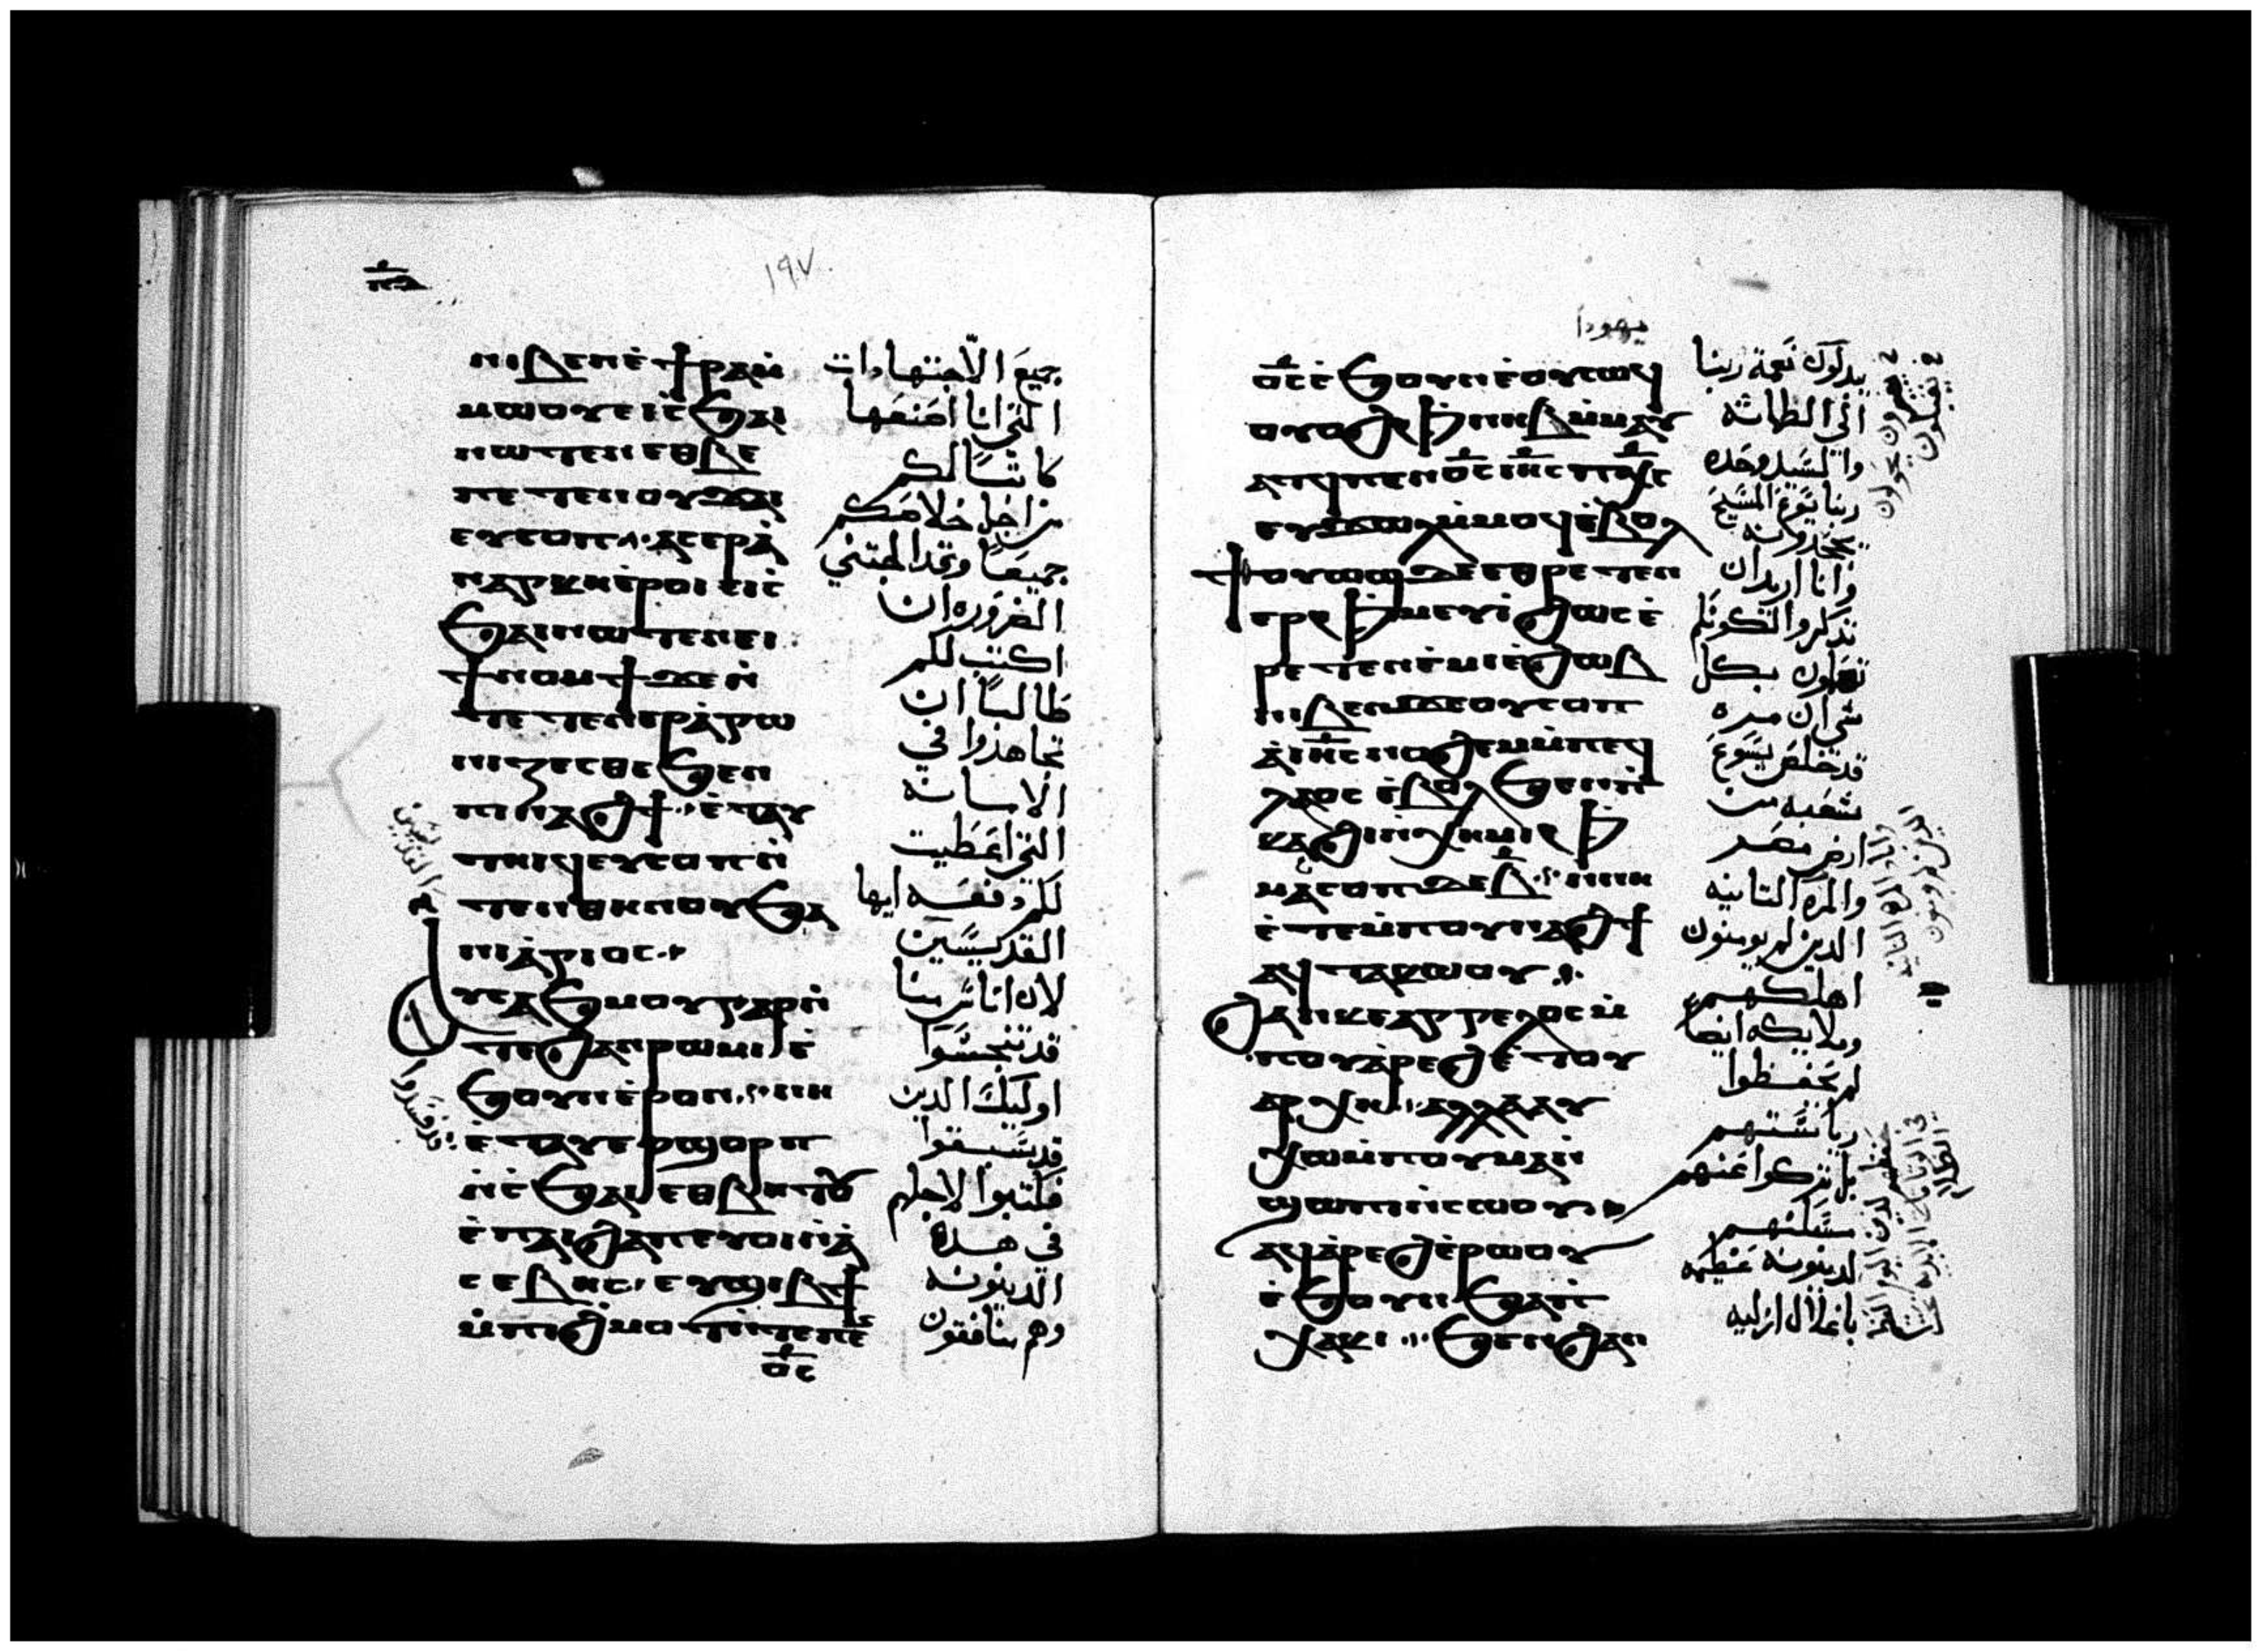 ١٩٧
ⲛⲓⲃⲉⲛ ⲉ̀ϯⲣⲁ ⲙ̀
ⲙⲱⲟⲩ ⲉⲓⲥ̀ϧⲁⲓ
ⲛⲱⲧⲉⲛ ⲉⲑⲃⲉ
ⲡⲉⲧⲉⲛⲟⲩϫⲁⲓ
ⲉⲩⲥⲟⲡ ⲁⲥⲉⲣⲁ̀
ⲛⲁⲅⲕⲏ ⲉ̀ⲣⲟⲓ ⲉⲓⲥ̀
ϧⲁⲓ ⲛⲱⲧⲉⲛ ⲉⲓ
ϯⲛⲟⲙϯ ϫⲉ ⲛ̀
ⲧⲉⲧⲉⲛⲉⲣⲁ̀ⲅⲱ
ⲛⲓⲍⲉⲥⲑⲉ ϧⲉⲛ
ⲡⲓⲛⲁϩϯ ⲉ̀ⲧⲁⲩ
ⲧⲏⲓϥ ⲉⲩⲥⲟⲡ ⲛ̀
ⲧⲉⲛⲑⲏⲛⲟⲩ ϧⲁ
ⲛⲓⲁ̀ⲅⲓⲟⲥ
ⲩⲥⲁϧⲙⲟⲩ ⲅⲁⲣ ⲛ̀
ϫⲉ ϩⲁⲛⲣⲱⲙⲓ ⲉ̀
ϧⲟⲩⲛ ⲉ̀ⲣⲟⲛ ⲛⲏ
ⲉ̀ⲧⲁⲩⲉⲣϣⲟⲣⲡ
ⲛ̀ⲥ̀ϧⲁⲓ ⲉⲑⲃⲏⲧⲟⲩ
ⲉ̀ⲡⲁⲓϩⲁⲡ ⲉⲩⲟⲓ ⲛ̀ⲁ̀
ⲥⲉⲃⲏⲥ ⲉⲩϣⲓⲃϯ
ⲙ̀ⲡⲓϩ̀ⲙⲟⲧ ⲛ̀ⲧⲉ ⲡⲉⲛ
ⲟ̅ⲥ̅
جميع الاجتهادات
التي انا اصنعها
كاتبًا لكم
من اجل خلاصكم
جميعًا وقد الجتني
الضروره ان
اكتب لكم
طالبًا ان
تجاهدوا في
الامانه
التي اعطيت
لكم دفعه ايها
القديسين
لان اناس منا
قد تنجسوا
اوليك الدين
قد سبقوا
فكتبوا لاجلهم
في هده
الدينونه
وهم منافقون
يهودا
ⲟ̅ⲥ̅ ⲉ̀ϧⲟⲩⲛ ⲉ̀ⲟⲩⲥⲱϥ
ⲟⲩⲟϩ ⲫ̀ⲛⲏⲃ ⲙ̀ⲙⲁⲩ
ⲁⲧϥ ⲡⲉⲛⲟ̅ⲥ̅ ⲓⲏ̅ⲥ̅ ⲡⲭ̅ⲥ̅
ⲉⲩϫⲱⲗ ⲙ̀ⲙⲟϥ ⲉ̀ⲃⲟⲗ
ϯⲟⲩⲱϣ ϫⲉ ⲉⲑⲣⲉⲧⲉⲛ
ⲉⲣⲫ̀ⲙⲉⲩⲓ̀ ϩⲱⲥ ⲉ̀
ⲣⲉⲧⲉⲛⲉ̀ⲙⲓ ⲉ̀ϩⲱⲃ
ⲛⲓⲃⲉⲛ ϫⲉ ⲟⲩⲥⲟⲡ
ⲁ̀ ⲓⲏ̅ⲥ̅ ⲛⲟϩⲉⲙ ⲙ̀ⲡⲉϥ
ⲗⲁⲟⲥ ⲉ̀ⲃⲟⲗ ϧⲉⲛ ⲡ̀
ⲕⲁϩⲓ ⲛ̀ⲭⲏⲙⲓ ⲫ̀
ⲙⲁⲥⲟⲡ ϫⲉ ⲃ̅ ⲛⲏ
ⲉ̀ⲧⲉⲙ̀ⲡⲟⲩⲛⲁϩϯ
ⲁϥⲧⲁⲕⲱⲟⲩ
ϩⲁⲛⲕⲉⲁⲅⲅⲉⲗⲟⲥ ⲙ̀
ⲡⲟⲩⲁ̀ⲣⲉϩ ⲉ̀ⲧⲟⲩ
ⲁⲣⲭⲏ ⲁⲗⲗⲁ ⲁⲩ
ⲭⲱ ⲙ̀ⲡⲟⲩⲙⲁⲛ̀
ϣⲱⲡⲓ ⲛ̀ⲥⲱⲟⲩ
ⲁϥⲁ̀ⲣⲉϩ ⲉ̀ⲣⲱⲟⲩ
ⲉ̀ϧⲟⲩⲛ ϧⲁ ⲛ̀
ⲭⲁⲕⲓ ϧⲉⲛ ϩⲁⲛ
يبدلون نعمة ربنا
الي الطماثه
والسيد وحده
ربنا يسوع المسيح
يجحدونه
وانا اريد ان
تدكروا لتكونكم
تعلمون بكل
شي ان مره
قد خلص يسوع
شعبه من
ارض مصر
والمره التانيه
الدين لم يومنون
اهلكهم
وملايكه ايضًا
لم يحفظوا
رياستهم
بل تركوا عنهم
مسكنهم
لدينونه عظيمه
باغلال ازليه